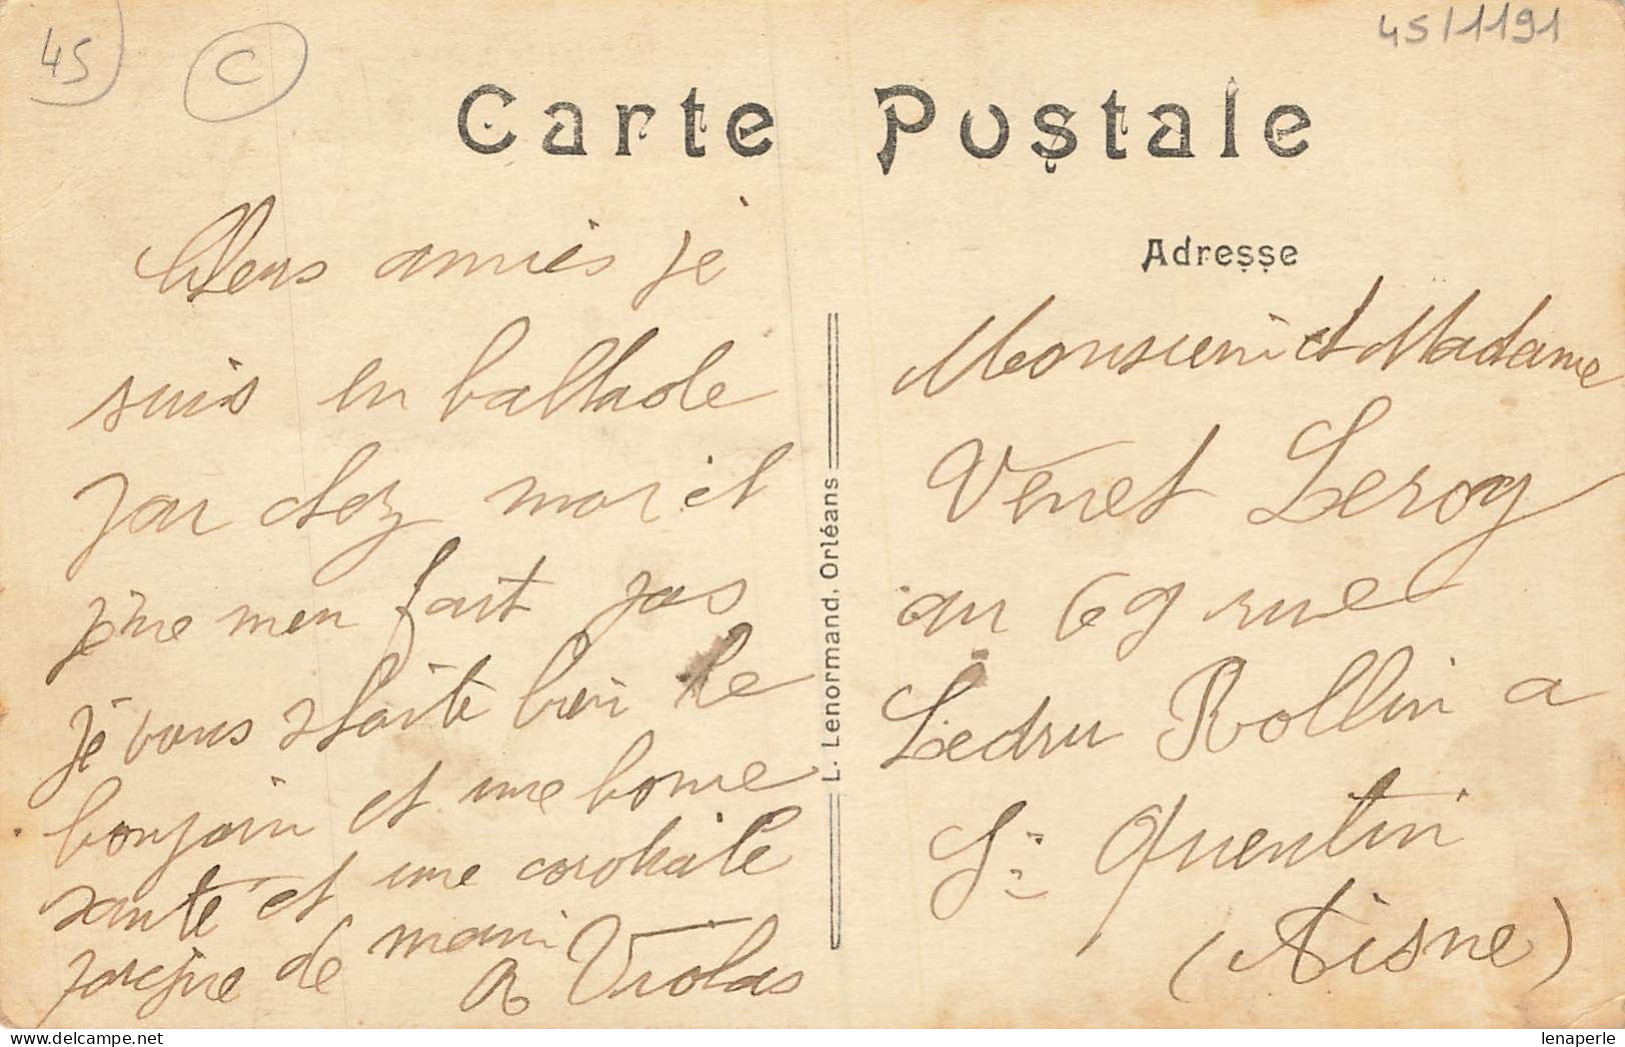 45
C
45/1191
Carte Postale
Adresse
Chers amies je
suis en ballade
par chez moi et
je ne men fait pas
je vous shaite bien le
bonjour et une bonne
sante et une cordiale
poigne de main
R Violas
L. Lenormand, Orléans
Monsieur et Madame
Venet Leroy
au 69 rue
Ledru Rollin a
St Quentin
(Aisne)
lenaperle